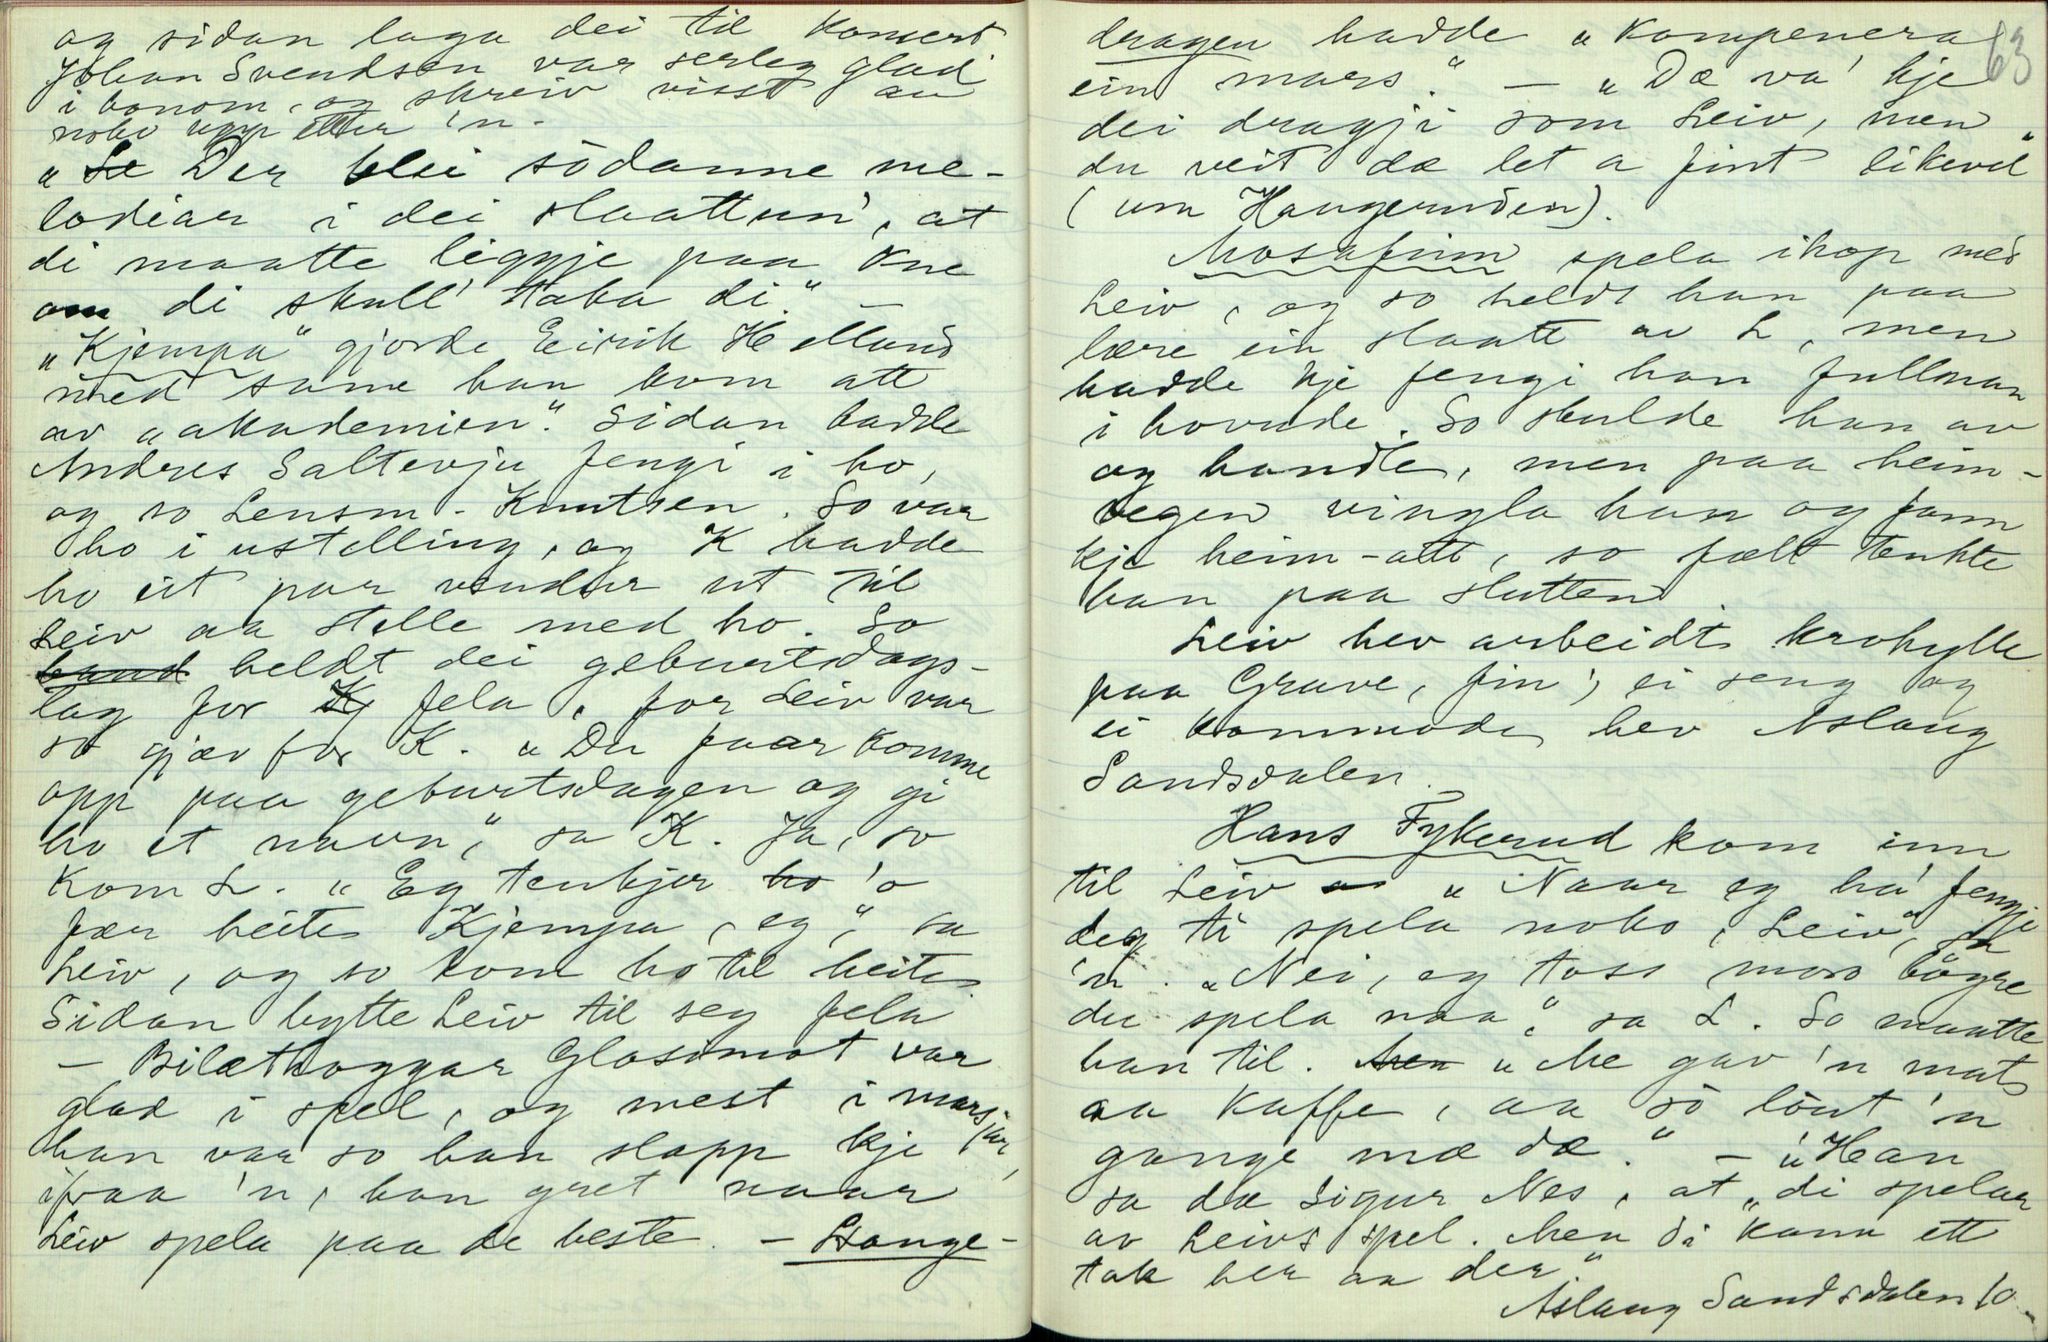 og sidan laga dei til konsert.
Johan Svendsen var serleg glad
i honom, og skreiv visst au
noko upp etter 'n.
„Se Der blei södanne me-
lodiar i dei slaattun', at
di maatte liggje paa kne
om di skull' taka di." –
„Kjempa" gjorde Eirik Helland
med same han kom att
av „akademien". Sidan hadde
Andres Saltevju fengi i ho,
og so Lensm. Knutsen. So var
ho i ustelling, og K hadde
ho eit par vendur ut til
Leiv aa stelle med ho. So
band heldt dei geburtsdags-
lag for K fela, for Leiv var
so gjæv for K. „Du faar komme
opp paa geburtsdagen og gi
ho et navn", sa K. Ja, so
kom L. „Eg tenkjer ho 'o
fær heite Kjempa, eg", sa
Leiv, og so kom ho til heite.
Sidan bytte Leiv til seg fela
– Bilæthoggar Glosimot var
glad i spel, og mest i marsjar,
han var so han slapp kje
ifraa 'n, han gret naar
Leiv spela paa de beste. – Hauge-
63
dragen hadde „kompenera
ein mars." – „Dæ va' kje
dei dragji som Leiv, men
du veit dæ let a fint likevel"
(um Haugeruden).
Mosafinn spela ihop med
Leiv, og so heldt han paa
lære ein slaatt av L, men
hadde kje fengi han fullnan
i hovude. So skulde han av
og handle, men paa heim-
vegen vingla han og fann
kje heim-att, so fælt tenkte
han paa slutten
Leiv hev arbeidt krohylle
paa Grave, fin', ei seng og
ei kommode hev Aslaug
Sandsdalen.
Hans Fykerud kom inn
til Leiv „Naar eg ha' fengje
deg ti spela noko, Leiv", sa
'n. „Nei, eg toss mos' bögre
du spela naa", sa L. So maatte
han til. Men „Me gav 'n mat
aa kaffe, aa so lönt 'n
gange mæ dæ." – „Han
sa dæ Sigur Nes, at „di spelar
av Leivs spel. Men di kann ett
tak her aa der"
Aslaug Sandsdalen 10